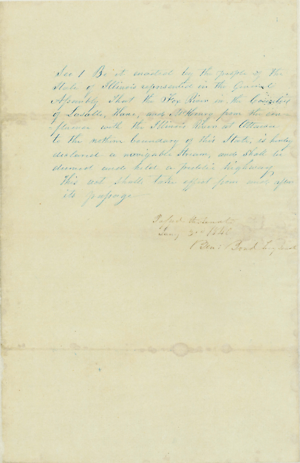 Sec 1 Be it enacted by the people of the
State of Illinois represented in the General
Assembly That the Fox River in the Counties
of Lasalle, Kane, and McHenry from its con
fluence with the Illinois River at Ottawa
to the northern boundary of this State, is hereby
declared a navigable stream, and shall be
deemed and held a public highway
This act shall take effect from and after
its passage